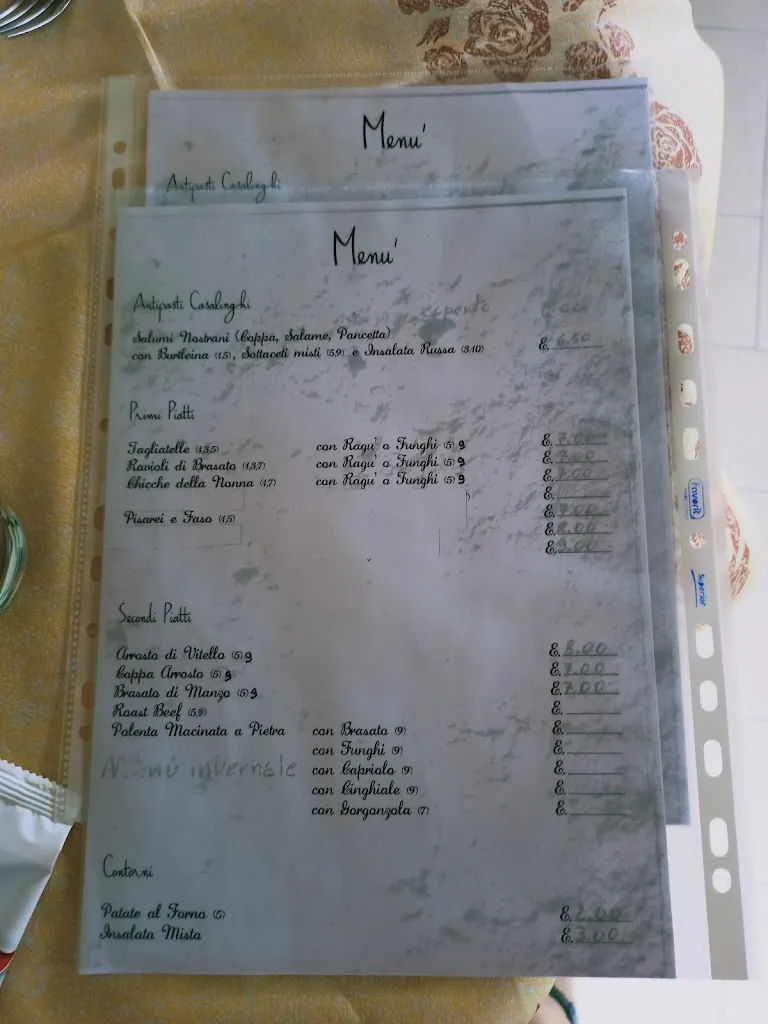 Menu'
Antipasti Casalinghi
Menu'
Antipasti Casalinghi coperto
Salumi Nostrani (Coppa, Salame, Pancetta)
con Burtleina (1,5), Sottaceti misti (5,9) e Insalata Russa (3,10) €. 6.50
Primi Piatti
Tagliatelle (1,3,5) con Ragu' o Funghi (5) 9 €. 7.00
Ravioli di Brasato (1,3,7) con Ragu' o Funghi (5) 9 €. 7.00
Chicche della Nonna (1,7) con Ragu' o Funghi (5) 9 €. 7.00
€.
Pisarei e Faso (1,5) €. 7.00
€. 8.00
€. 9.00
Secondi Piatti
Arrosto di Vitello (5) 9 €. 8.00
Coppa Arrosto (5) 9 €. 7.00
Brasato di Manzo (5) 9 €. 7.00
Roast Beef (5,9) €.
Polenta Macinata a Pietra con Brasato (9) €.
con Funghi (9) €.
invernale con Capriolo (9) €.
con Cinghiale (9) €.
con Gorgonzola (7) €.
Contorni
Patate al Forno (5) €. 2.00
Insalata Mista €. 3.00
favorit
superior